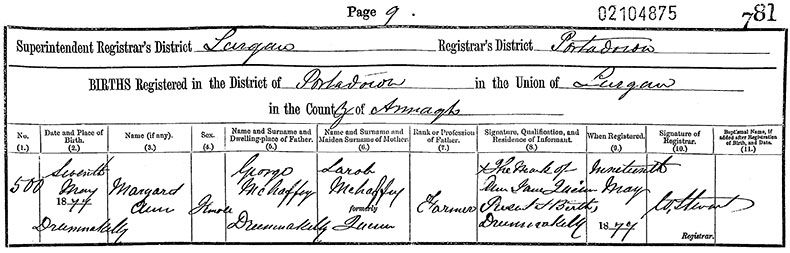 Page 9. 02104875 781
Superintendent Registrar's District Lurgan Registrar's District Portadown
BIRTHS Registered in the District of Portadown in the Union of Lurgan
in the County of Armagh
No. (1.)
Date and Place of Birth. (2.)
Name (if any). (3.)
Sex. (4.)
Name and Surname and Dwelling-place of Father. (5.)
Name and Surname and Maiden Surname of Mother. (6.)
Rank or Profession of Father. (7.)
Signature, Qualification, and Residence of Informant. (8.)
When Registered. (9.)
Signature of Registrar. (10.)
Baptismal Name, if added after Registration of Birth, and Date. (11.)
500
Seventh
May
1877
Drumnakelly
Margard
Ann
Female
George
Mehaffey
Drumnakelly
Sarah
Mehaffey
formerly
Quinn
Farmer
X The Mark of
Ann Jane Quinn
Present at Birth
Drumnakelly
Nineteenth
May
1877
W Stewart
Registrar.